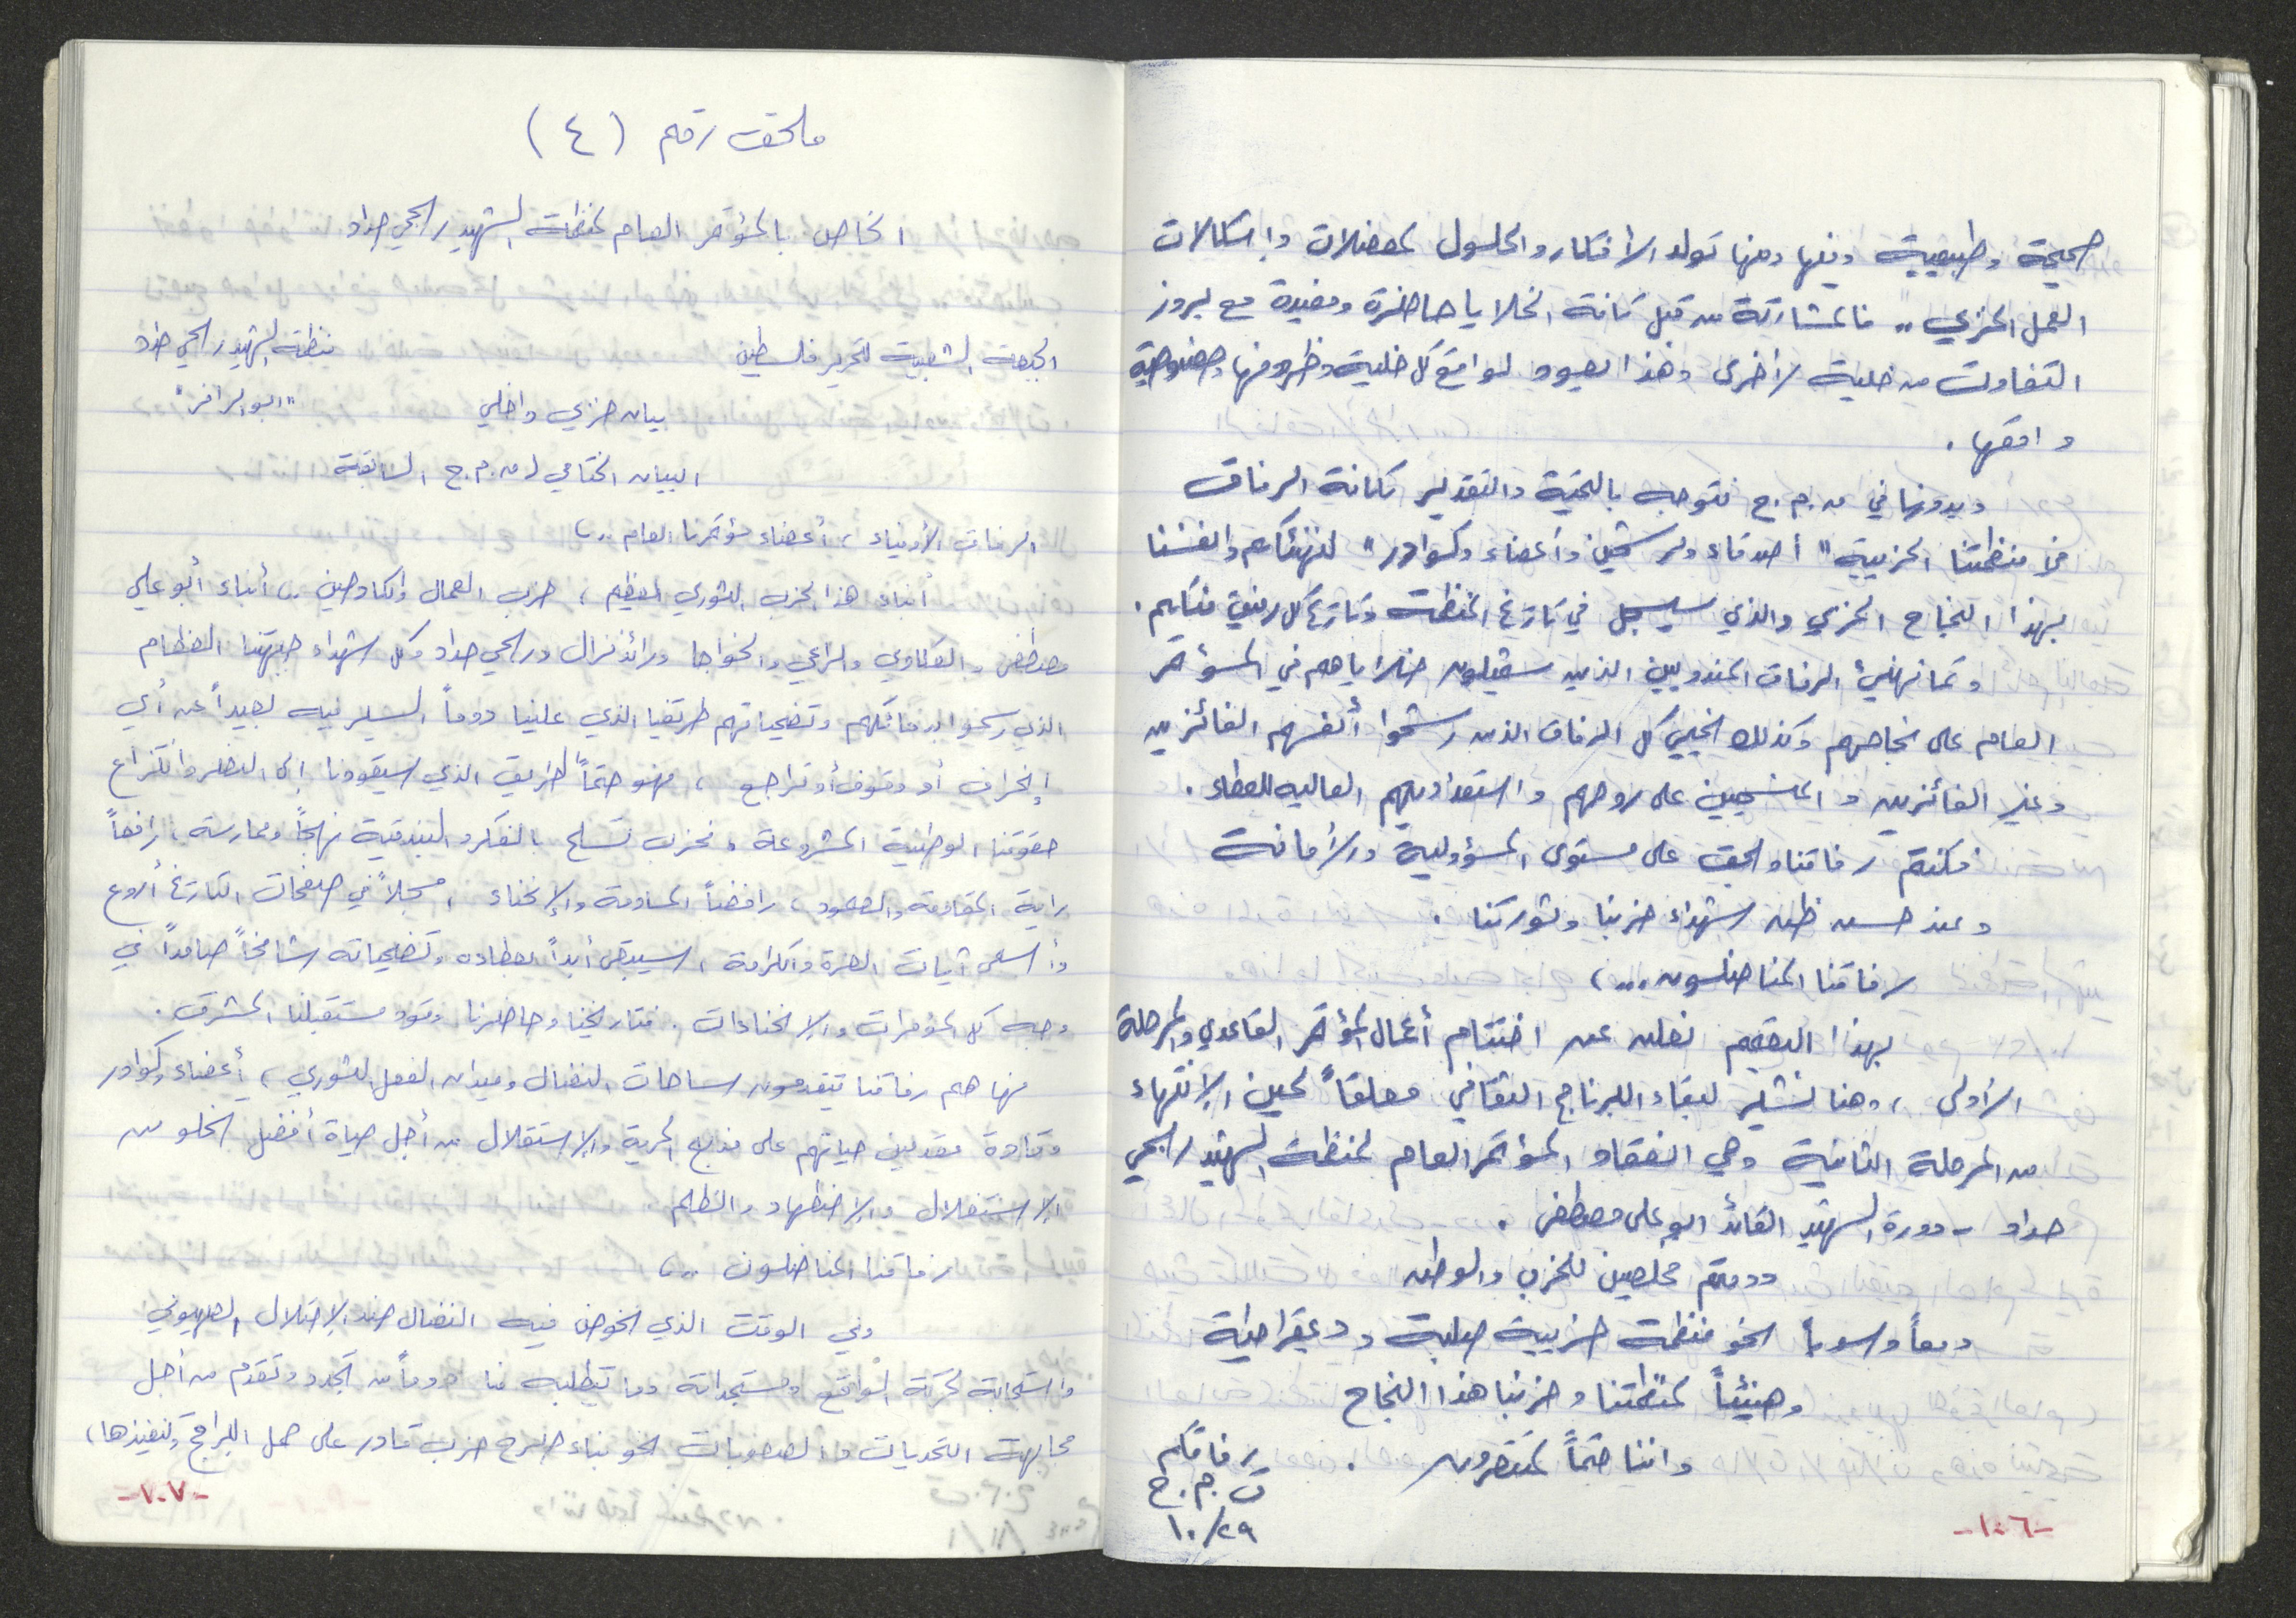 صحيحة وطبيعية وفيها ومنها تولد الأفكار والحلول لمعضلات وإشكالات
العمل الحزبي .. فالمشاركة من قبل كافة الخلايا حاضرة ومفيدة مع بروز
التفاوت من خلية لأخرى وهذا يعود لواقع كل خلية وظروفها وخصوصية
واقعها .
وبدورنا في ل.م.ح نتوجه بالتحية والتقدير لكافة الرفاق
في منظمتنا الحزبية " أصدقاء ومرشحين وأعضاء وكوادر " لنهنئكم وانفسنا
بهذا النجاح الحزبي والذي سيسجل في تاريخ المنظمة وتاريخ كل رفيق منكم .
وكما نهنئ الرفاق المندوبين الذين سيمثلون خلاياهم في المؤتمر
العام على نجاحهم وكذلك نحيي كل الرفاق الذين رشحوا أنفسهم الفائزين
وغير الفائزين و المنسحبين على روحهم واستعداديتهم العاليه للعطاء .
فكنتم رفاقنا وبحق على مستوى المسؤولية والأمانة
وعند حسن ظن شهداء حزبنا وثورتنا .
رفاقنا المناضلون ...،
بهذا التعميم نعلن عن اختتام أعمال المؤتمر القاعدي والمرحلة
الأولى ، وهنا نشير لبقاء البرنامج الثقافي معلقاً لحين الإنتهاء
من المرحلة الثانية وهي انعقاد المؤتمر العام لمنظمة الشهيد ربحي
حداد - دورة الشهيد القائد ابو علي مصطفى .
ودمتم مخلصين للحزب والوطن
ومعاً وسوياً نحو منظمة حزبية صلبة وديمقراطية
وهنيئاً لمنظمتنا وحزبنا هذا النجاح
واننا حتماً لمنتصرون .
رفاقكم
ل.م.ح
١٠/٢٩
-١٠٦-
ملحق رقم (٤)
الخاص بالمؤتمر العام لمنظمة الشهيد ربحي حداد
الجبهة الشعبية لتحرير فلسطين
منظمة الشهيد ربحي حداد
بيان حزبي داخلي
"ابو الرامز"
البيان الختامي ل.م.ح السابقة
الرفاق الأوفياء ، أعضاء مؤتمرنا العام ..،
أبناء هذا الحزب الثوري العظيم ، حزب العمال والكادحين .. أبناء أبو علي
مصطفى والعكاوي والراعي والخواجا ورائد نزال وربحي حداد وكل شهداء جبهتنا العظام
الذي رسموا بدمائهم وتضحياتهم طريقنا الذي علينا دوماً السير فيه بعيداً عن أي
إنحراف أو وقوف أو تراجع ، فهو حتماً الطريق الذي سيقودنا إلى النصر وانتزاع
حقوقنا الوطنية المشروعة ، فحزب تسلح بالفكر والبندقية نهجاً وممارسة ، رافعاً
راية المقاومة والصمود ، رافضاً المساومة والإنحناء ، مسجلاً في صفحات التاريخ أروع
وأسمى آيات العزة والكرامة ، سيبقى أبداً بعطاءه وتضحياته شامخاً صامداً في
وجه كل المؤمرات والإنحناءات . فتاريخنا وحاضرنا وقود مستقبلنا المشرق .
فها هم رفاقنا يتقدمون ساحات النضال وميدان الفعل الثوري ، أعضاء وكوادر
وقادة مقدمين حياتهم على مذبح الحرية والإستقلال من أجل حياة أفضل تخلو من
الإستغلال والإضطهاد والظلم .
رفاقنا المناضلون ..،
وفي الوقت الذي نخوض فيه النضال ضد الإحتلال الصهيوني
واستجابة لحركة الواقع ومستجداته وما تتطلبه منا دوماً من تجدد وتقدم من أجل
مجابهة التحديات والصعوبات نحو بناء صرح حزب قادر على حمل البرامج وتنفيذها ،
-١٠٧-